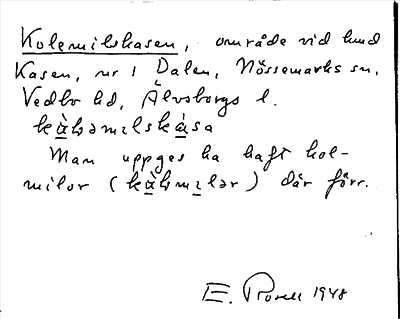 Kolemilskasen, område vid lund
Kasen, nr 1 Dalen, Nössemarks sn,
Vedbo hd, Älvsborgs l.
kàləmɪlskása
Man uppges ha haft kol-
milor (kàlmɪlər) där förr.
E. 1948